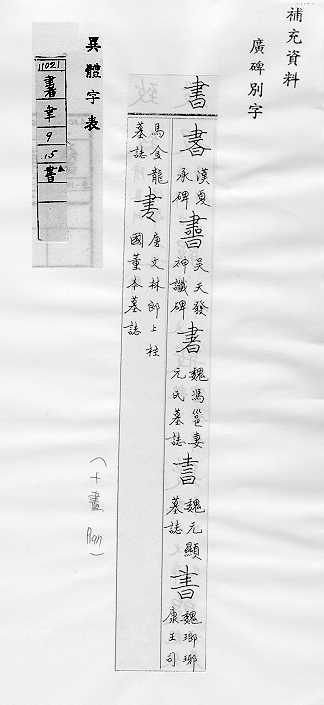 補充資料
廣碑別字
書
書 漢夏承碑
書 吳天發神讖碑
書 魏馮邕妻元氏墓誌
書 魏元顯墓誌
書 魏瑯瑯康王司
馬金龍墓誌
書 唐文林郎上柱國董本墓誌
異體字表
11021
聿
9
15
(十畫